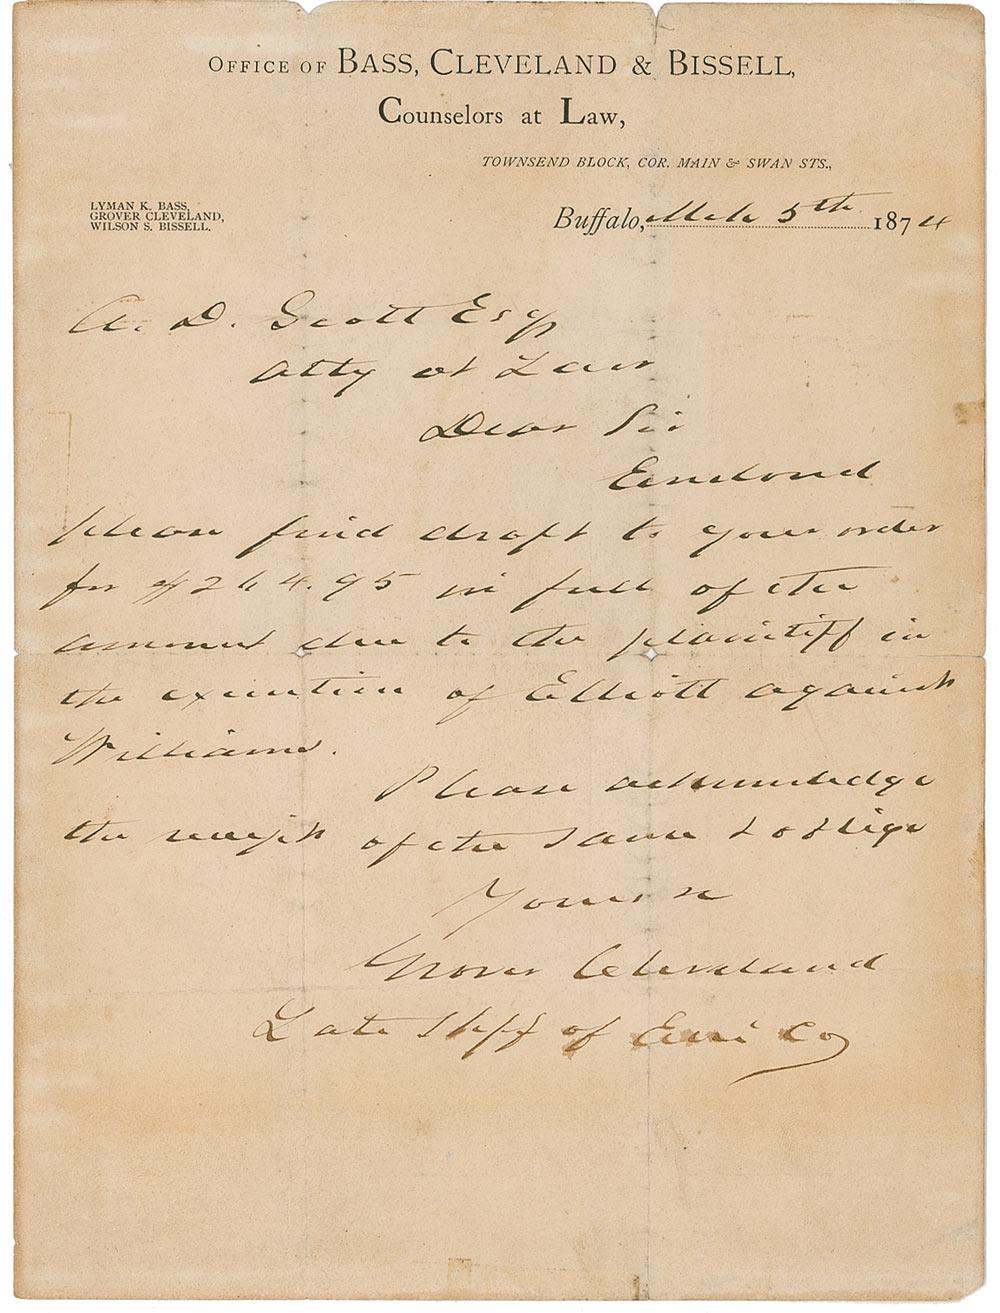 OFFICE OF BASS, CLEVELAND & BISSELL,
Counselors at Law,
TOWNSEND BLOCK, COR. MAIN & SWAN STS.,
LYMAN K. BASS,
GROVER CLEVELAND,
WILSON S. BISSELL.
Buffalo, Mch 5th 1874
A. D. Scott Esq
Atty at Law
Dear Sir
Enclosed
please find draft to your order
for $264.95 in full of the
amount due to the plaintiff in
the execution of Elliott against
Williams.
Please acknowledge
the receipt of the same & oblige
Yours &c
Grover Cleveland
Late Shff of Erie Co